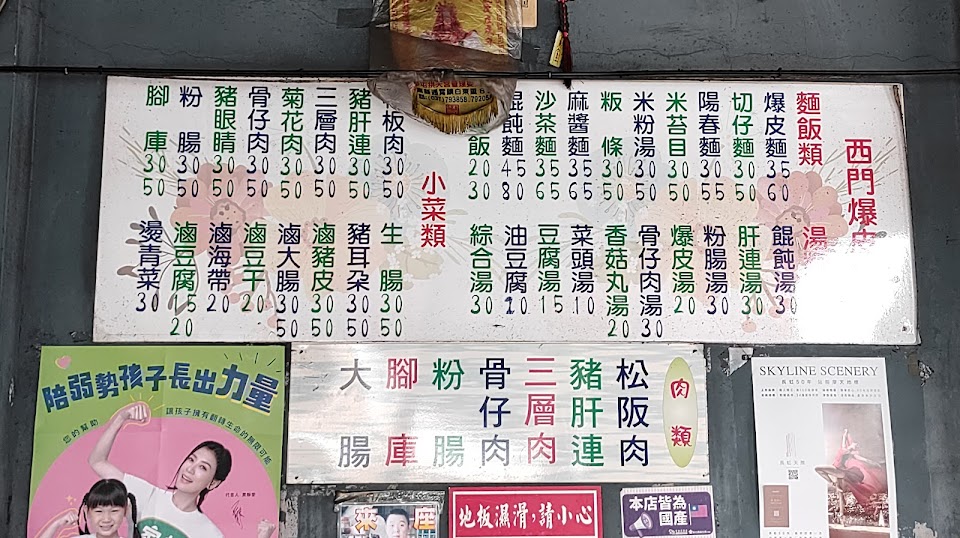 西門爆皮
麵飯類
爆皮麵 35 60
切仔麵 30 50
陽春麵 30 55
米苔目 30 50
米粉湯 30 50
粄條 30 50
麻醬麵 35 65
沙茶麵 35 65
餛飩麵 45 80
飯 20 30
湯
餛飩湯 30
肝連湯 30
粉腸湯 30
爆皮湯 20
骨仔肉湯 30
香菇丸湯 20
菜頭湯 10
豆腐湯 15
油豆腐 20
綜合湯 30
小菜類
板肉 30 50
豬肝連 30 50
三層肉 30 50
菊花肉 30 50
骨仔肉 30 50
豬眼睛 30 50
粉腸 30 50
腳庫 30 50
生腸 30 50
豬耳朵 30 50
滷豬皮 30 50
滷大腸 30 50
滷豆干 20
滷海帶 20
滷豆腐 15 20
燙青菜 30
肉類
松阪肉
豬肝連
三層肉
骨仔肉
粉腸
腳庫
大腸
陪弱勢孩子長出力量
您的幫助
讓孩子擁有翻轉生命的無限可能
SKYLINE SCENERY
地板濕滑,請小心
本店皆為
國產